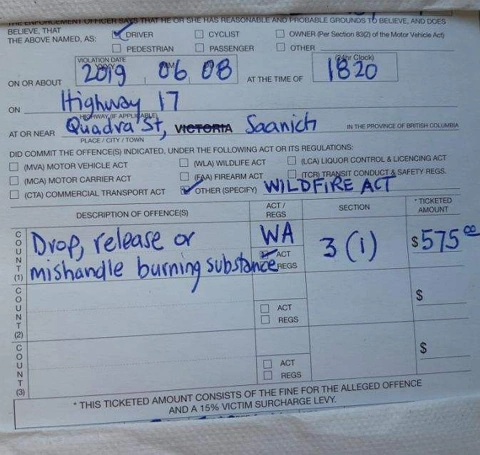 THE ENFORCEMENT OFFICER SAYS THAT HE OR SHE HAS REASONABLE AND PROBABLE GROUNDS TO BELIEVE, AND DOES
BELIEVE, THAT
THE ABOVE NAMED, AS: DRIVER CYCLIST OWNER (Per Section 83(2) of the Motor Vehicle Act)
PEDESTRIAN PASSENGER OTHER
VIOLATION DATE (24hr Clock)
ON OR ABOUT 2019 06 08 AT THE TIME OF 1820
ON Highway 17
HIGHWAY (IF APPLICABLE)
AT OR NEAR Quadra St, VICTORIA Saanich IN THE PROVINCE OF BRITISH COLUMBIA
PLACE / CITY / TOWN
DID COMMIT THE OFFENCE(S) INDICATED, UNDER THE FOLLOWING ACT OR ITS REGULATIONS:
(MVA) MOTOR VEHICLE ACT (WLA) WILDLIFE ACT (LCA) LIQUOR CONTROL & LICENCING ACT
(MCA) MOTOR CARRIER ACT (FAA) FIREARM ACT (TCR) TRANSIT CONDUCT & SAFETY REGS.
(CTA) COMMERCIAL TRANSPORT ACT OTHER (SPECIFY) WILDFIRE ACT
DESCRIPTION OF OFFENCE(S) ACT / REGS SECTION * TICKETED AMOUNT
COUNT (1) Drop, release or WA 3 (1) $575 00
mishandle burning substance ACT
REGS
COUNT (2) ACT $
REGS
COUNT (3) ACT $
REGS
* THIS TICKETED AMOUNT CONSISTS OF THE FINE FOR THE ALLEGED OFFENCE
AND A 15% VICTIM SURCHARGE LEVY.